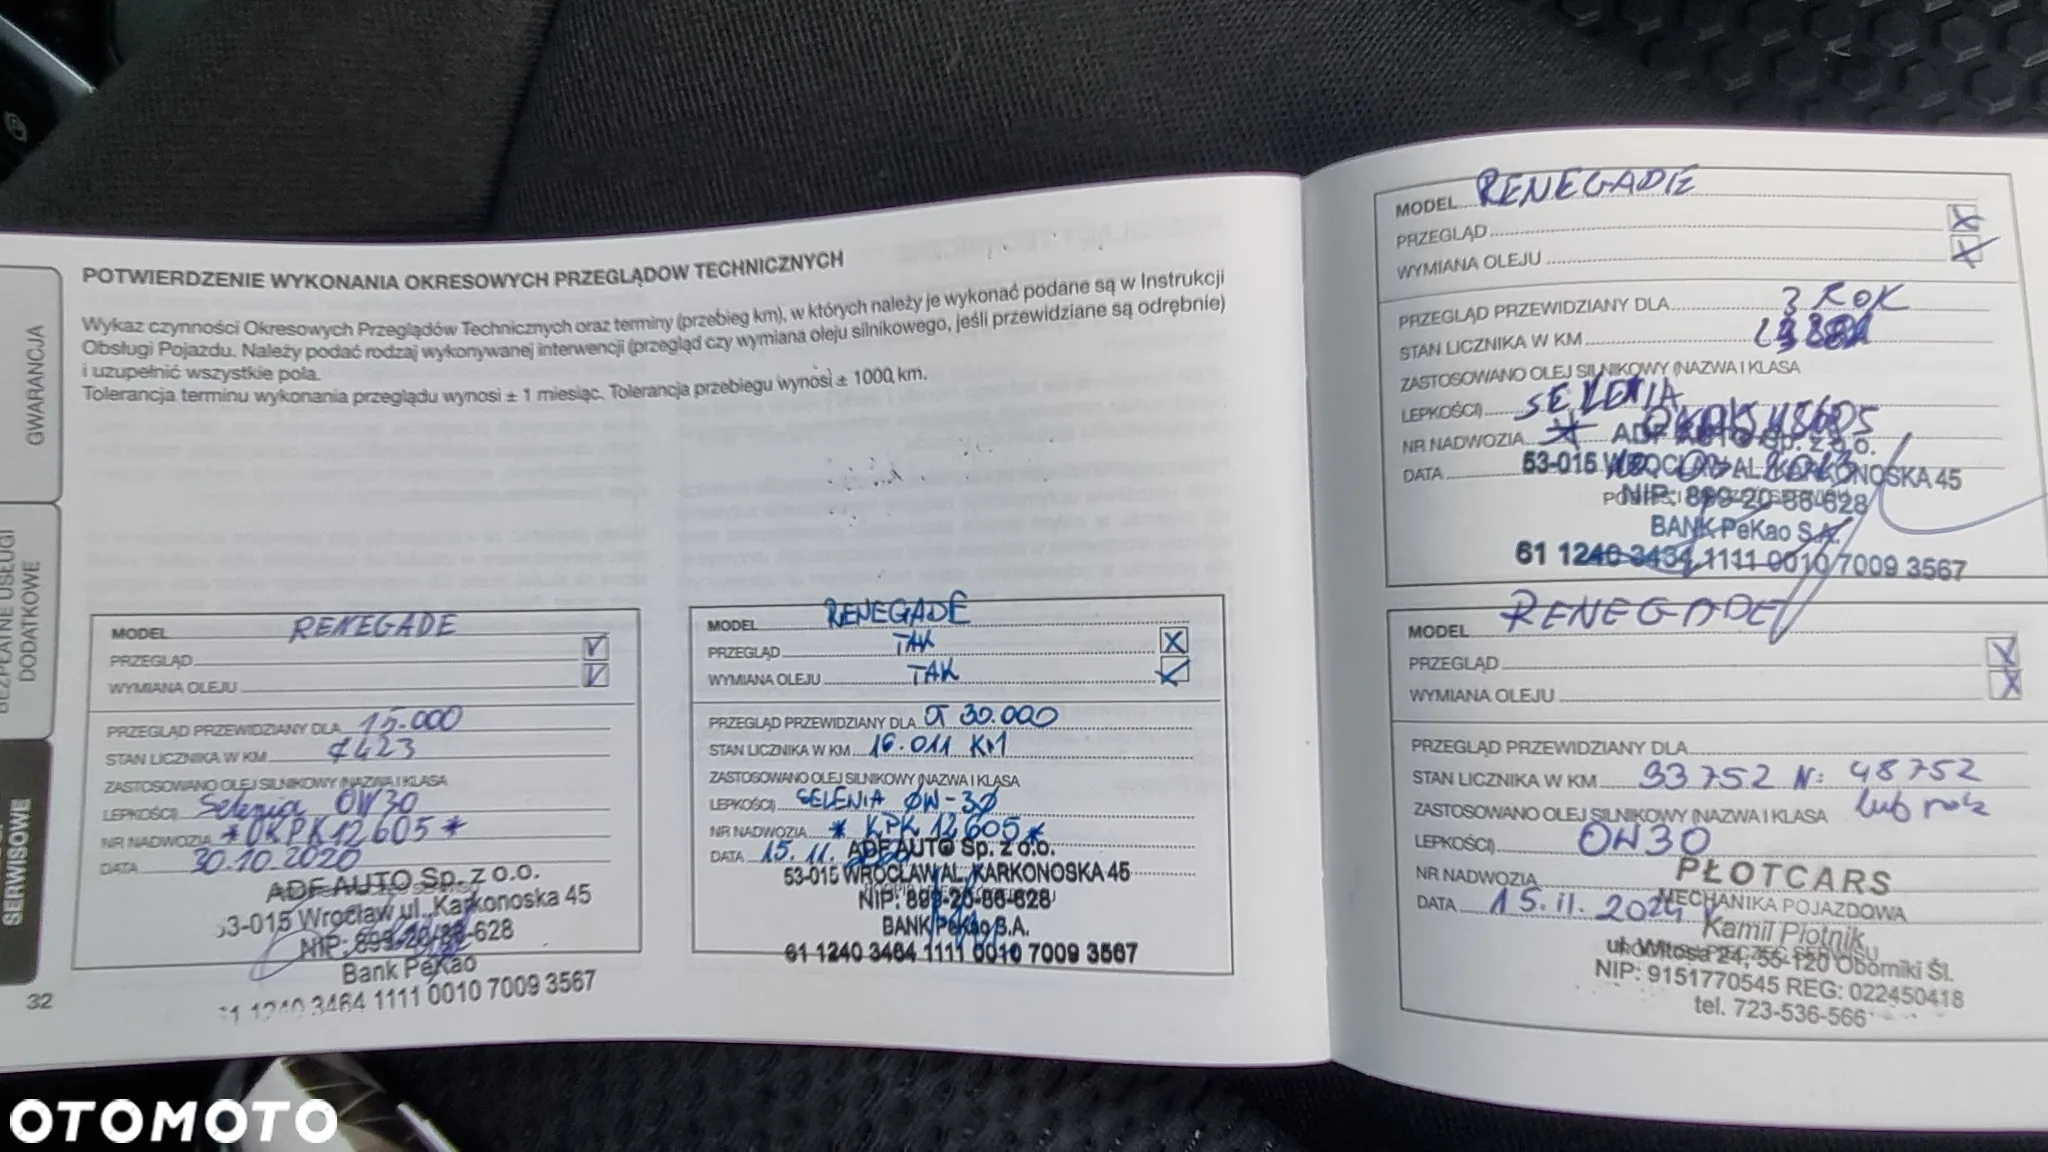 GWARANCJA
BEZPŁATNE USŁUGI
DODATKOWE
SERWISOWE
POTWIERDZENIE WYKONANIA OKRESOWYCH PRZEGLĄDÓW TECHNICZNYCH
Wykaz czynności Okresowych Przeglądów Technicznych oraz terminy (przebieg km), w których należy je wykonać podane są w Instrukcji
Obsługi Pojazdu. Należy podać rodzaj wykonywanej interwencji (przegląd czy wymiana oleju silnikowego, jeśli przewidziane są odrębnie)
i uzupełnić wszystkie pola.
Tolerancja terminu wykonania przeglądu wynosi ± 1 miesiąc. Tolerancja przebiegu wynosi ± 1000 km.
MODEL RENEGADE
PRZEGLĄD V
WYMIANA OLEJU V
PRZEGLĄD PRZEWIDZIANY DLA 15.000
STAN LICZNIKA W KM 7423
ZASTOSOWANO OLEJ SILNIKOWY (NAZWA I KLASA
LEPKOŚCI) Selenia 0W30
NR NADWOZIA *0KPK12605*
DATA 30.10.2020
ADF AUTO Sp. z o.o.
53-015 Wrocław ul. Karkonoska 45
NIP: 899-20-86-628
Bank PeKao
61 1240 3464 1111 0010 7009 3567
32
MODEL RENEGADE
PRZEGLĄD TAK X
WYMIANA OLEJU TAK
PRZEGLĄD PRZEWIDZIANY DLA 30.000
STAN LICZNIKA W KM 16.011 KM
ZASTOSOWANO OLEJ SILNIKOWY (NAZWA I KLASA
LEPKOŚCI) SELENIA 0W-30
NR NADWOZIA * KPK 12605*
DATA 15.11.
ADF AUTO Sp. z o.o.
53-015 WROCŁAW AL. KARKONOSKA 45
NIP: 899-20-86-628
BANK PeKao S.A.
61 1240 3464 1111 0010 7009 3567
MODEL RENEGADE
PRZEGLĄD X
WYMIANA OLEJU X
PRZEGLĄD PRZEWIDZIANY DLA 3 ROK
STAN LICZNIKA W KM
ZASTOSOWANO OLEJ SILNIKOWY (NAZWA I KLASA
LEPKOŚCI) SELENIA
NR NADWOZIA *
ADF AUTO Sp. z o.o.
DATA
53-015 WROCŁAW AL. KARKONOSKA 45
NIP: 899-20-86-628
BANK PeKao S.A.
61 1240 3464 1111 0010 7009 3567
MODEL RENEGADE
PRZEGLĄD X
WYMIANA OLEJU X
PRZEGLĄD PRZEWIDZIANY DLA
STAN LICZNIKA W KM 33752 N: 48752
ZASTOSOWANO OLEJ SILNIKOWY (NAZWA I KLASA lub rok
LEPKOŚCI) 0W30
NR NADWOZIA
PŁOTCARS
DATA 15.11.2024
MECHANIKA POJAZDOWA
Kamil Płotnik
ul. Witosa 24, 55-120 Oborniki Śl.
NIP: 9151770545 REG: 022450418
tel. 723-536-566
OTOMOTO